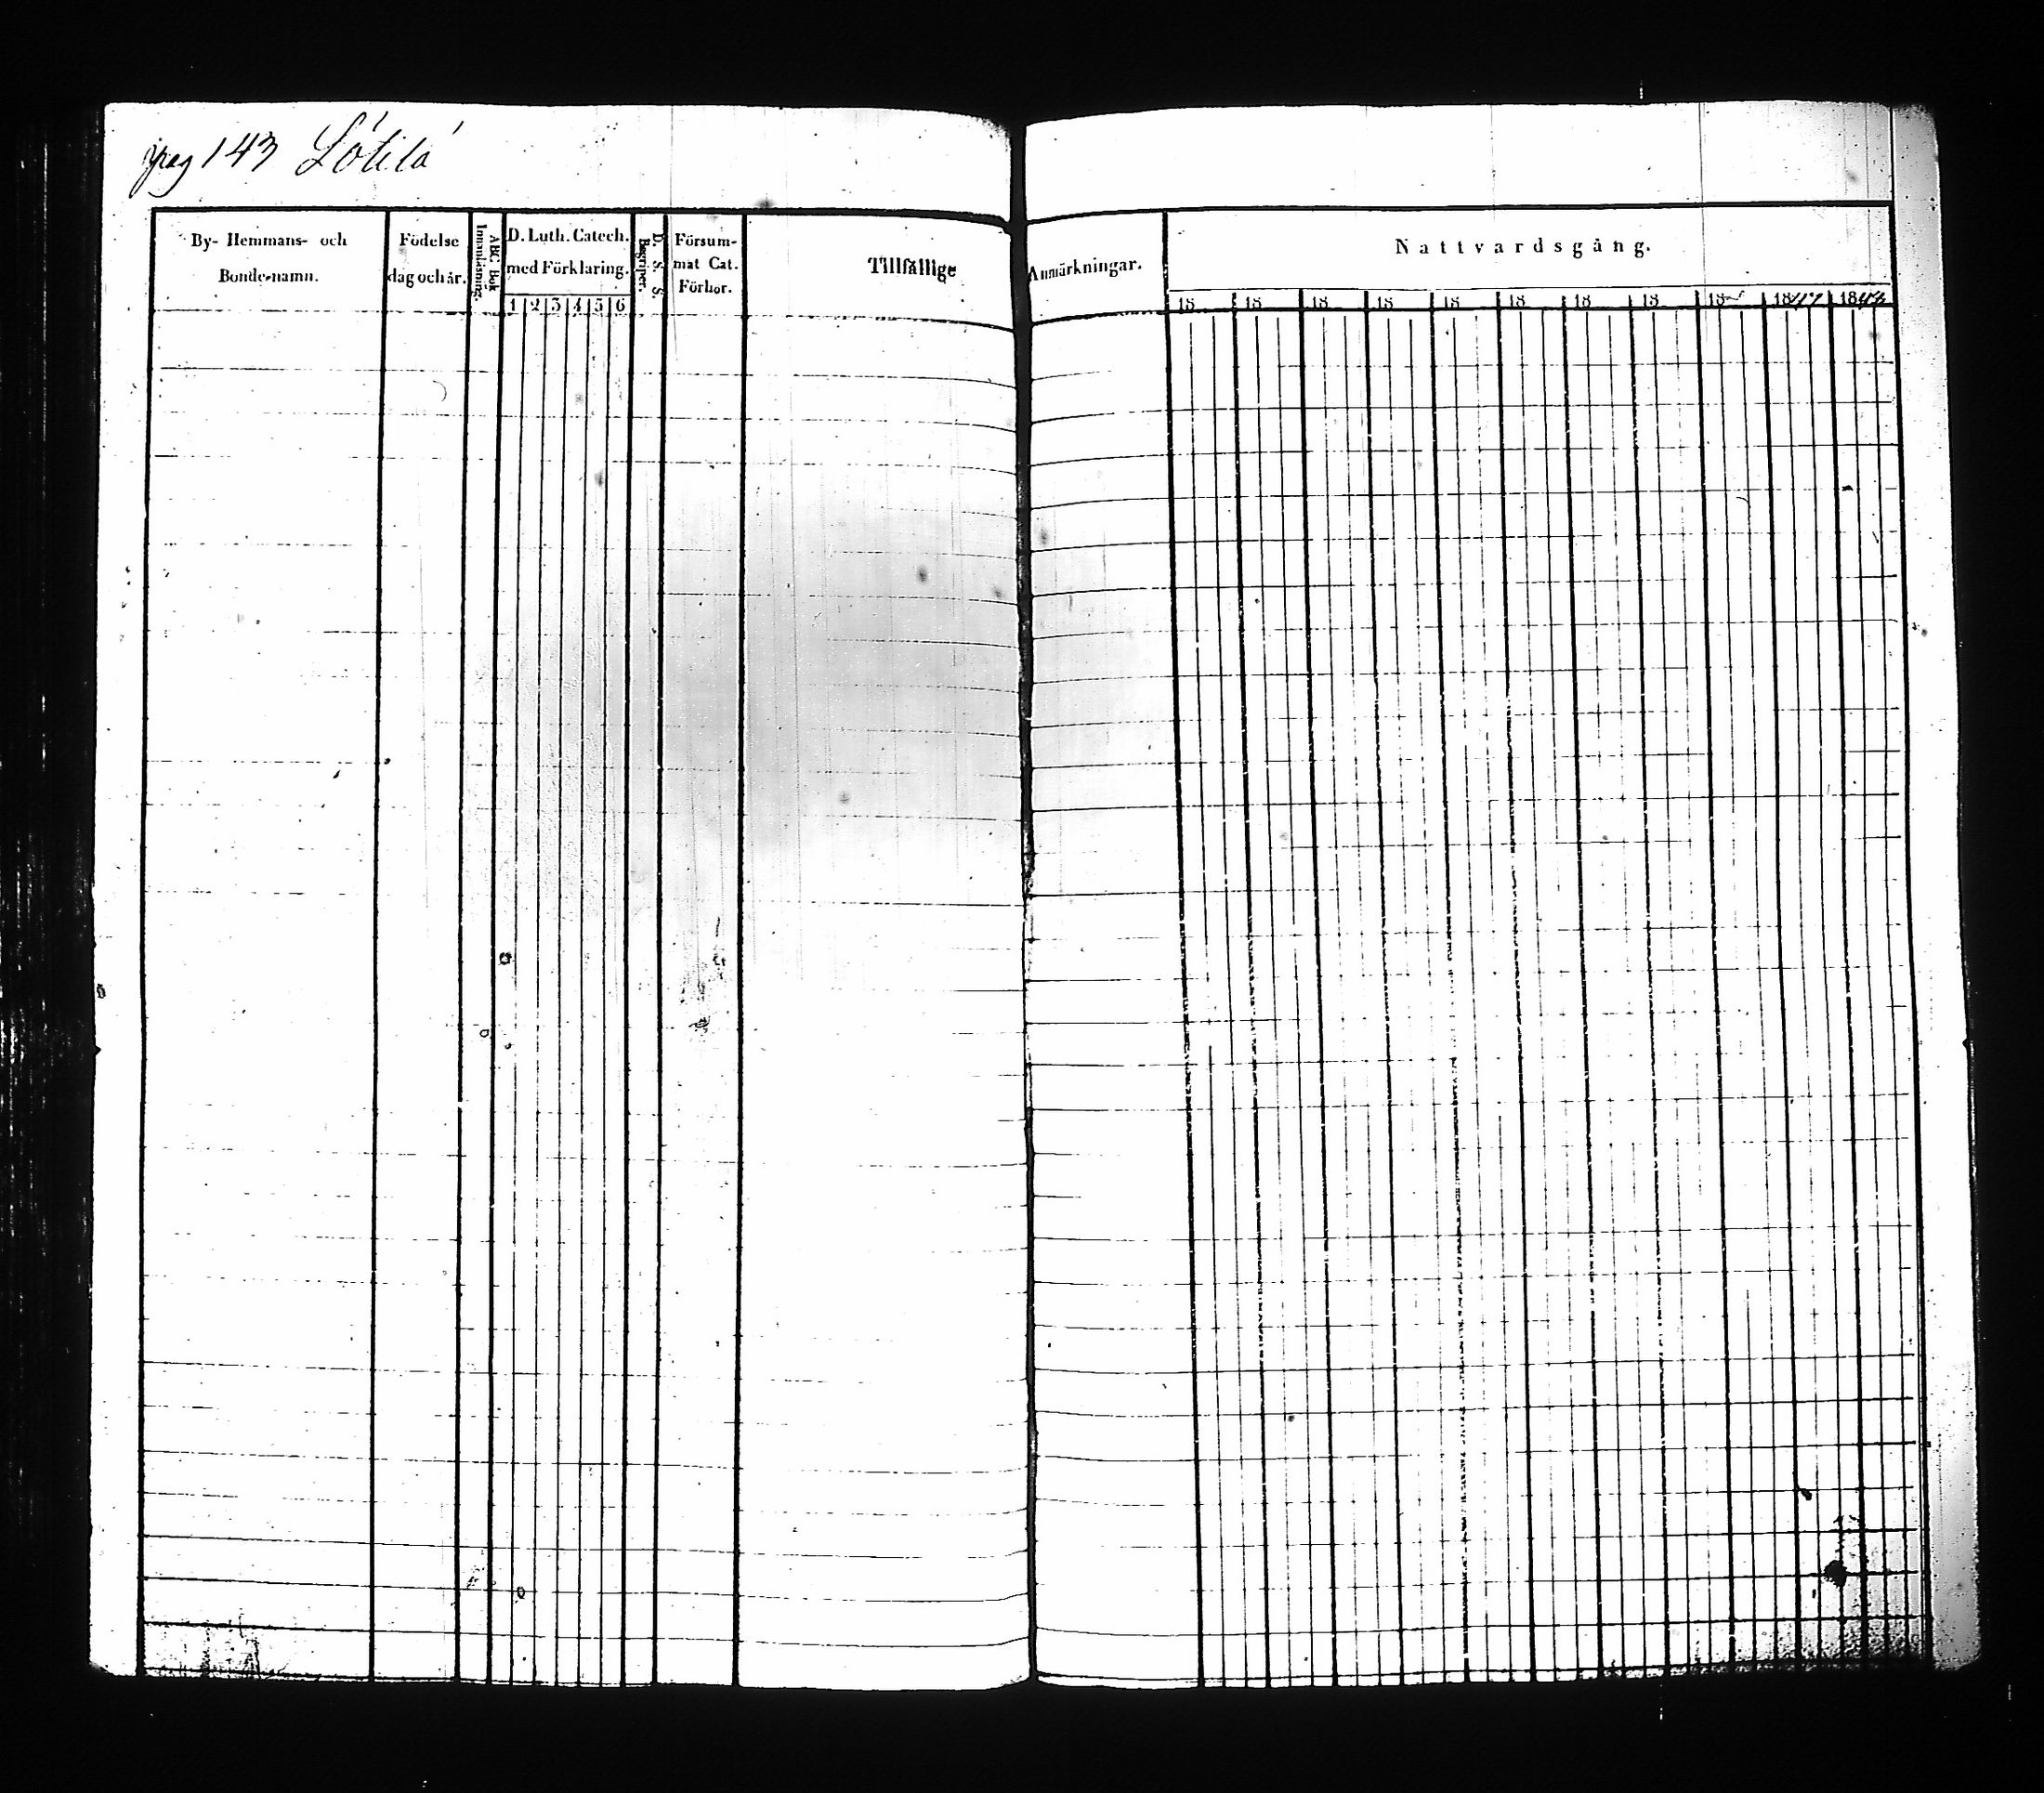 pag 143 Lötilä
By- Hemmans- och
Bonde-namn.
Födelse
dag och år.
ABC Bok
Innanläsning.
D. Luth. Catech.
med Förklaring.
1 2 3 4 5 6
D. S. S.
Begriper.
Försum-
mat Cat.
Förhör.
Tillfällige
Anmärkningar.
Nattvardsgång.
18 18 18 18 18 18 18 18 18 18 18